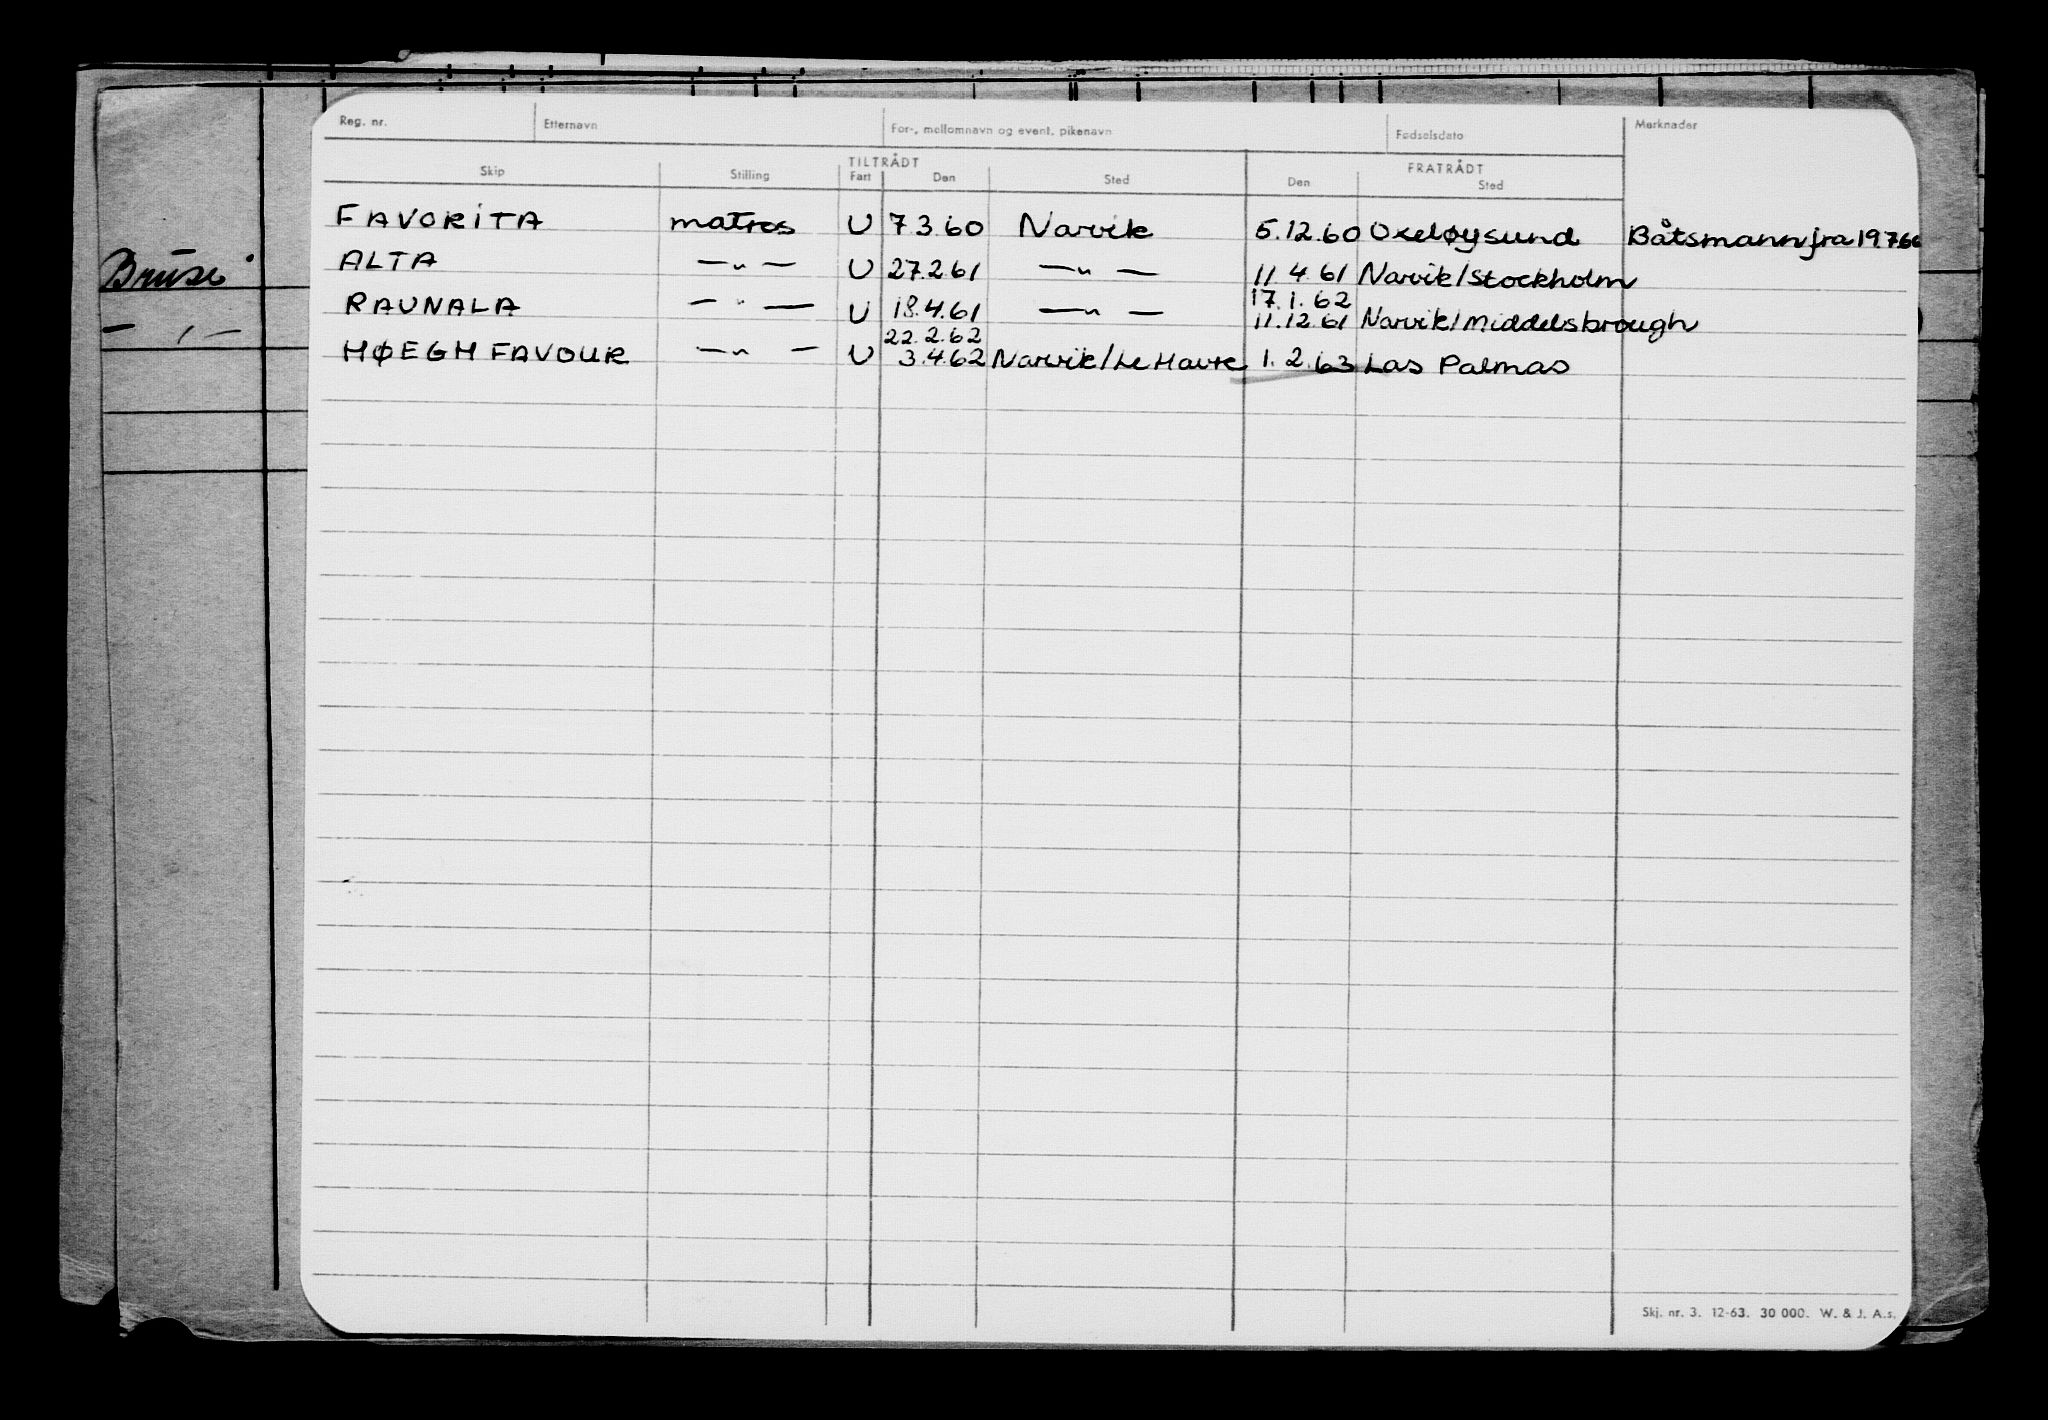 Reg. nr. Etternavn For-, mellomnavn og event. pikenavn Fødselsdato Merknader
TILTRÅDT FRATRÅDT
Skip Stilling Fart Den Sted Den Sted
FAVORITA matros U 7 3.60 Narvik 5.12.60 Oxeløysund Båtsmann fra 19.7.60
ALTA —"— U 27.2.61 —"— 11.4.61 Narvik/Stockholm
17.1.62
RAUNALA —"— U 18.4.61 —"— 11.12.61 Narvik/Middelsbrough
22.2.62
HØEGH FAVOUR —"— U 3.4.62 Narvik/Le Havre 1.2.63 Las Palmas
— " —
Skj. nr. 3. 12-63. 30 000. W. & J. A.s.